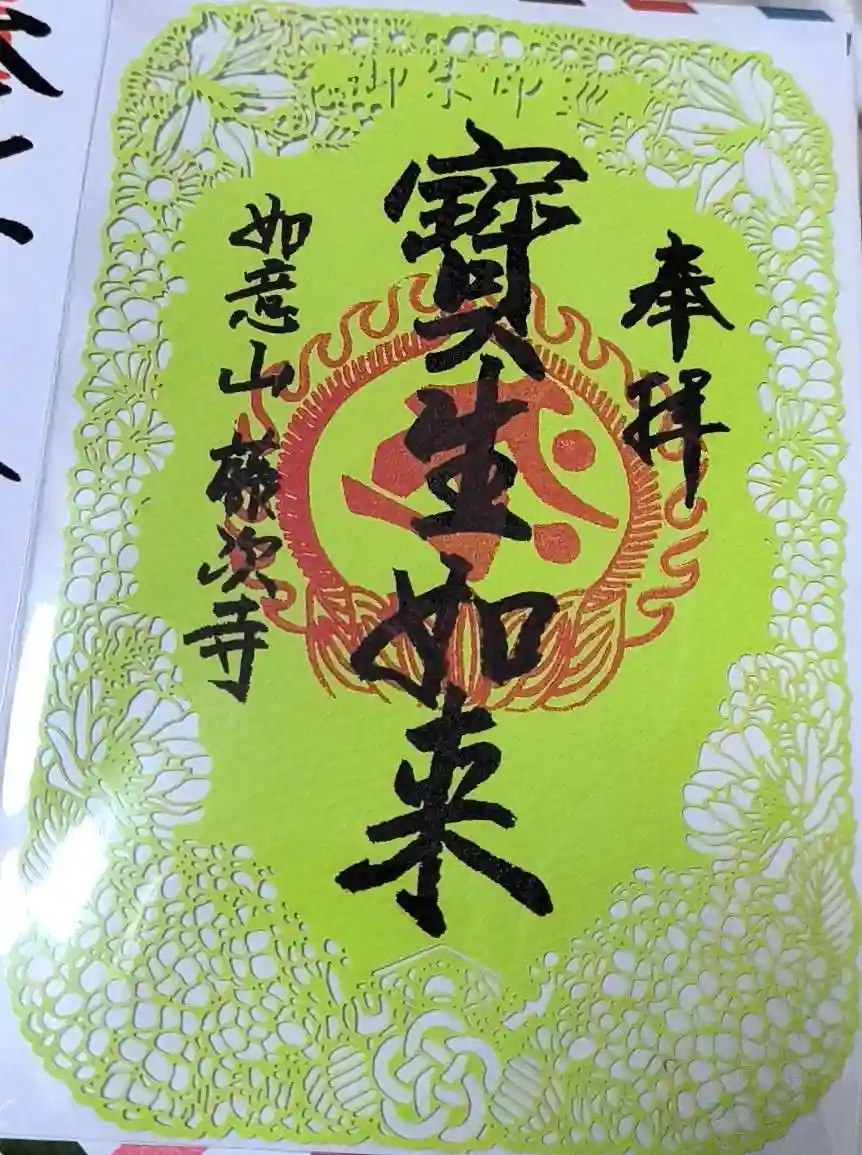 御朱印
奉拝
寶生如来
如意山 藤次寺